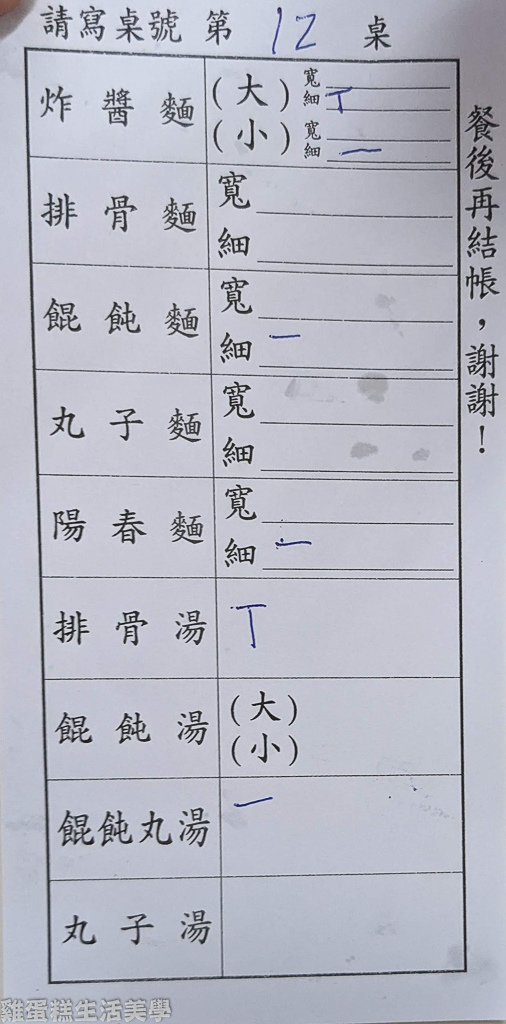 請寫桌號 第 12 桌
餐後再結帳，謝謝！
炸醬麵 (大) 寬
細 丅
(小) 寬
細 一
排骨麵 寬
細
餛飩麵 寬
細 一
丸子麵 寬
細
陽春麵 寬
細 一
排骨湯 丅
餛飩湯 (大)
(小)
餛飩丸湯 一
丸子湯
雞蛋糕生活美學